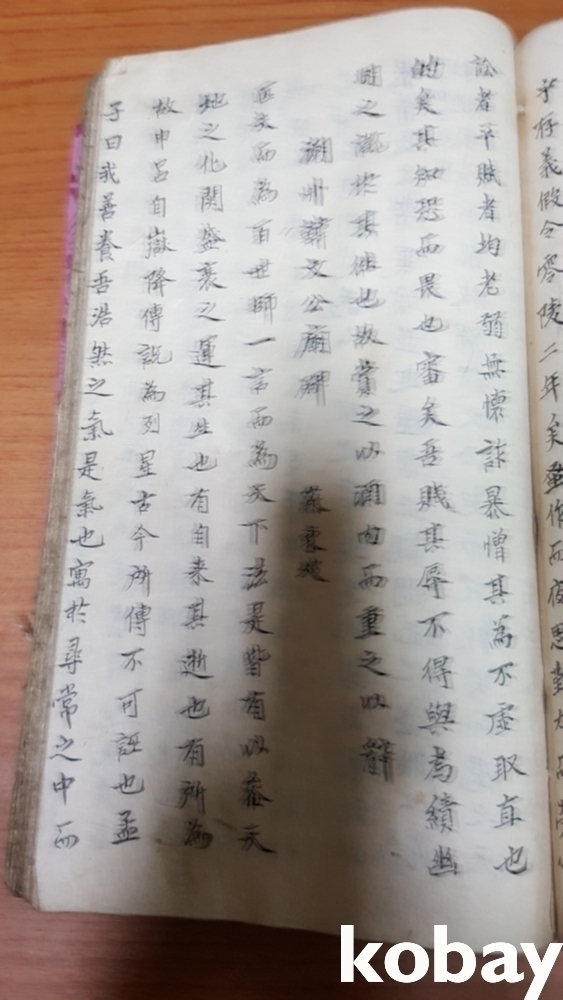 存義假令零陵二年矣蚤作而夜思勤力而勞
訟者平賦者均老弱無懷詐暴憎其為不虛取直也
的矣其知恐而畏也審矣吾賤其辱不得與為績幽
明之說於其徃也故賞之以酒肉而重之以辭
潮州韓文公廟碑 蘇東坡
匹夫而為百世師一言而為天下法是皆有以叅天
地之化關盛衰之運其生也有自来其逝也有所為
故申呂自嶽降傅說為列星古今所傳不可誣也孟
子曰我善養吾浩然之氣是氣也寓於尋常之中而
kobay